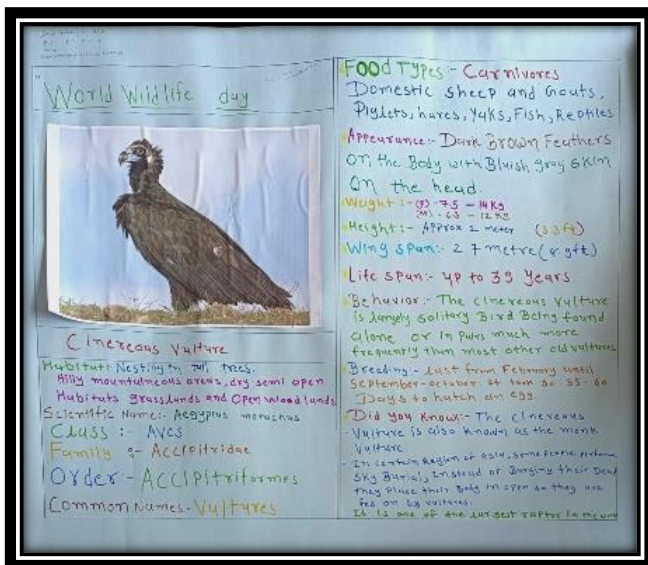 World Wildlife day
Cinereous Vulture
Habitat: Nesting in Tall trees.
Hilly mountaineous areas, dry semi open
Habitats grasslands and Open wood lands
Scientific Name:- Aegypius monachus
Class :- Aves
Family :- Accipitridae
Order - Accipitriformes
Common Names - Vultures
Food Types - Carnivores
Domestic sheep and Goats,
Piglets, hares, Yaks, Fish, Reptiles
Appearance:- Dark Brown Feathers
on the Body with Bluish gray skin
on the head.
Weight :- (F) - 7.5 - 14 Kg
(M) - 6.3 - 12 Kg
Height:- Approx 1 meter (3.3 ft)
Wing span:- 2.7 metre (8.9ft)
Life span:- up to 39 years.
Behavior:- The cinereous Vulture
is largely solitary Bird Being found
alone or in pairs much more
frequently than most other old vultures
Breeding:- Last from February until
September-october. it 50-55-60
Days to hatch an egg.
Did you know:- The cinereous
- Vulture is also known as the monk
Vulture
- In certain Region of asia, some people
sky Burial, Instead of Burying their Dead
they place their Body in open so they are
Fed on by vultures.
It is one of the largest raptor in